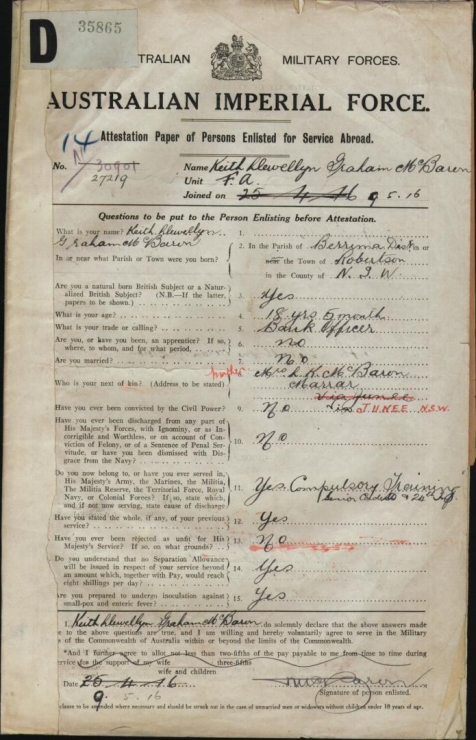 D
35865
TRALIAN MILITARY FORCES.
AUSTRALIAN IMPERIAL FORCE.
14
Attestation Paper of Persons Enlisted for Service Abroad.
No. 30901 Name Keith Llewellyn Graham McBaron
27219 Unit F. A.
Joined on 25 4 16 9 5.16
Questions to be put to the Person Enlisting before Attestation.
What is your name? Keith Llewellyn 1.
Graham McBaron 2. In the Parish of Berrima Dist in or
In or near what Parish or Town were you born? near the Town of Robertson
in the County of N.S.W
Are you a natural born British Subject or a Natu-
ralized British Subject? (N.B.—If the latter, 3. Yes
papers to be shown.)
What is your age? 4. 18 yrs 5 month
What is your trade or calling? 5. Bank Officer
Are you, or have you been, an apprentice? If so, 6. no
where, to whom, and for what period
Are you married? 7. no
mother Mrs L. K. McBaron
Who is your next of kin? (Address to be stated) Marrar
via Junee
JUNEE N.S.W.
Have you ever been convicted by the Civil Power? 9. No
Have you ever been discharged from any part of
His Majesty's Forces, with Ignominy, or as In-
corrigible and Worthless, or on account of Con- 10. No
viction of Felony, or of a Sentence of Penal Ser-
vitude, or have you been dismissed with Dis-
grace from the Navy?
Do you now belong to, or have you ever served in,
His Majesty's Army, the Marines, the Militia,
The Militia Reserve, the Territorial Force, Royal 11. Yes. Compulsory Training
Navy, or Colonial Forces? If so, state which, Senior Cadets
and if not now serving, state cause of discharge
Have you stated the whole, if any, of your previous 12. Yes
service?
Have you ever been rejected as unfit for His 13. No
Majesty's Service? If so, on what grounds?
Do you understand that no Separation Allowance
will be issued in respect of your service beyond 14. Yes
an amount which, together with Pay, would reach
eight shillings per day?
Are you prepared to undergo inoculation against 15. Yes
small-pox and enteric fever?
I, Keith Llewellyn Graham McBaron do solemnly declare that the above answers made
to the above questions are true, and I am willing and hereby voluntarily agree to serve in the Military
of the Commonwealth of Australia within or beyond the limits of the Commonwealth.
*And I further agree to allot not less than two-fifths of the pay payable to me from time to time during
service for the support of my wife three-fifths
wife and children
Date 25 4 16
9. 5. 16 Signature of person enlisted.
should be struck out in the case of unmarried men or widowers without children under 18 years of age.